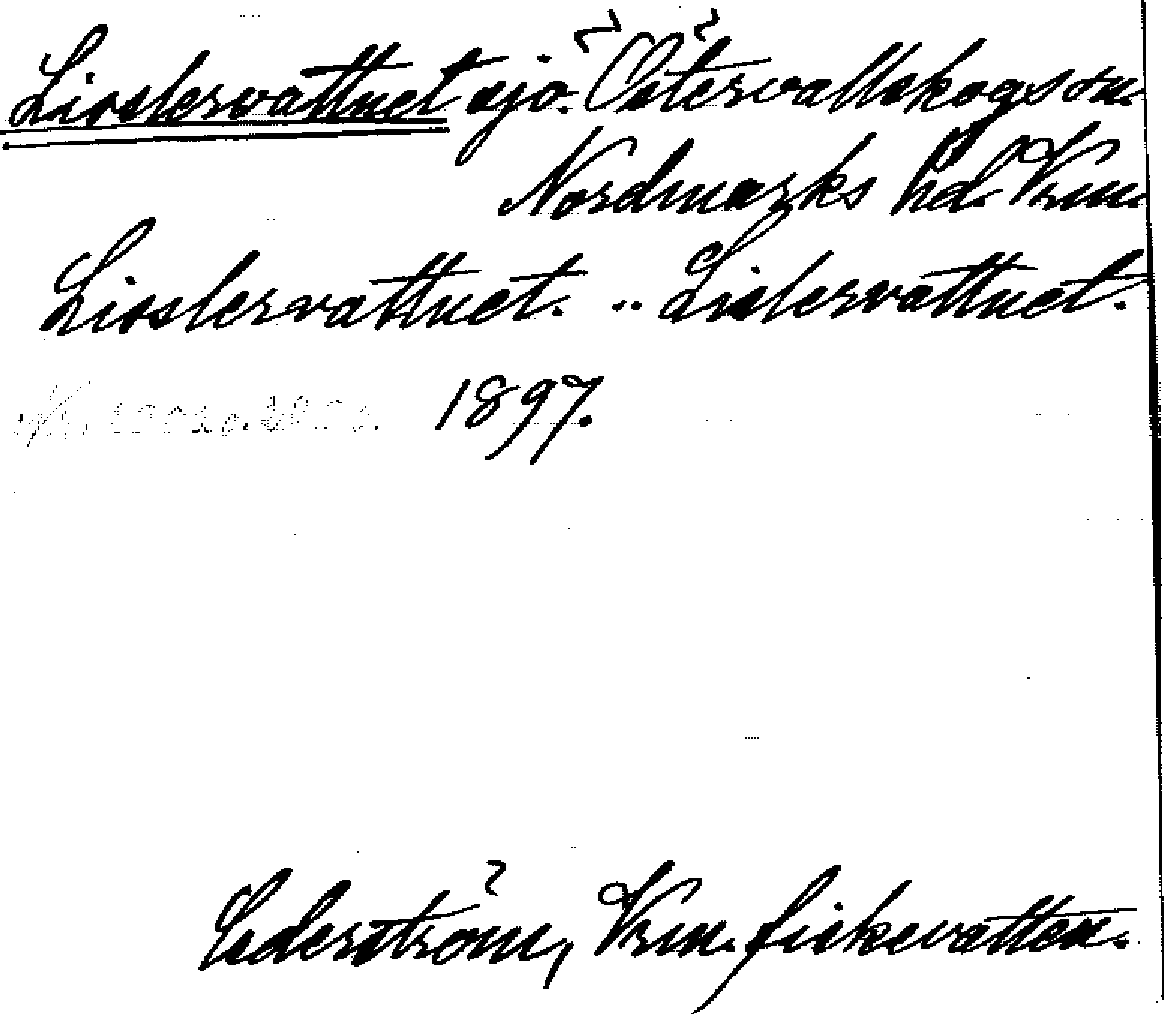 Lisslersvattnet sjö. Östervallskogs sn.
Nordmarks hd. Vrm.
Lisslersvattnet. .. Lislersvattnet.
1897.
Cederström, Vrm. fiskevatten.